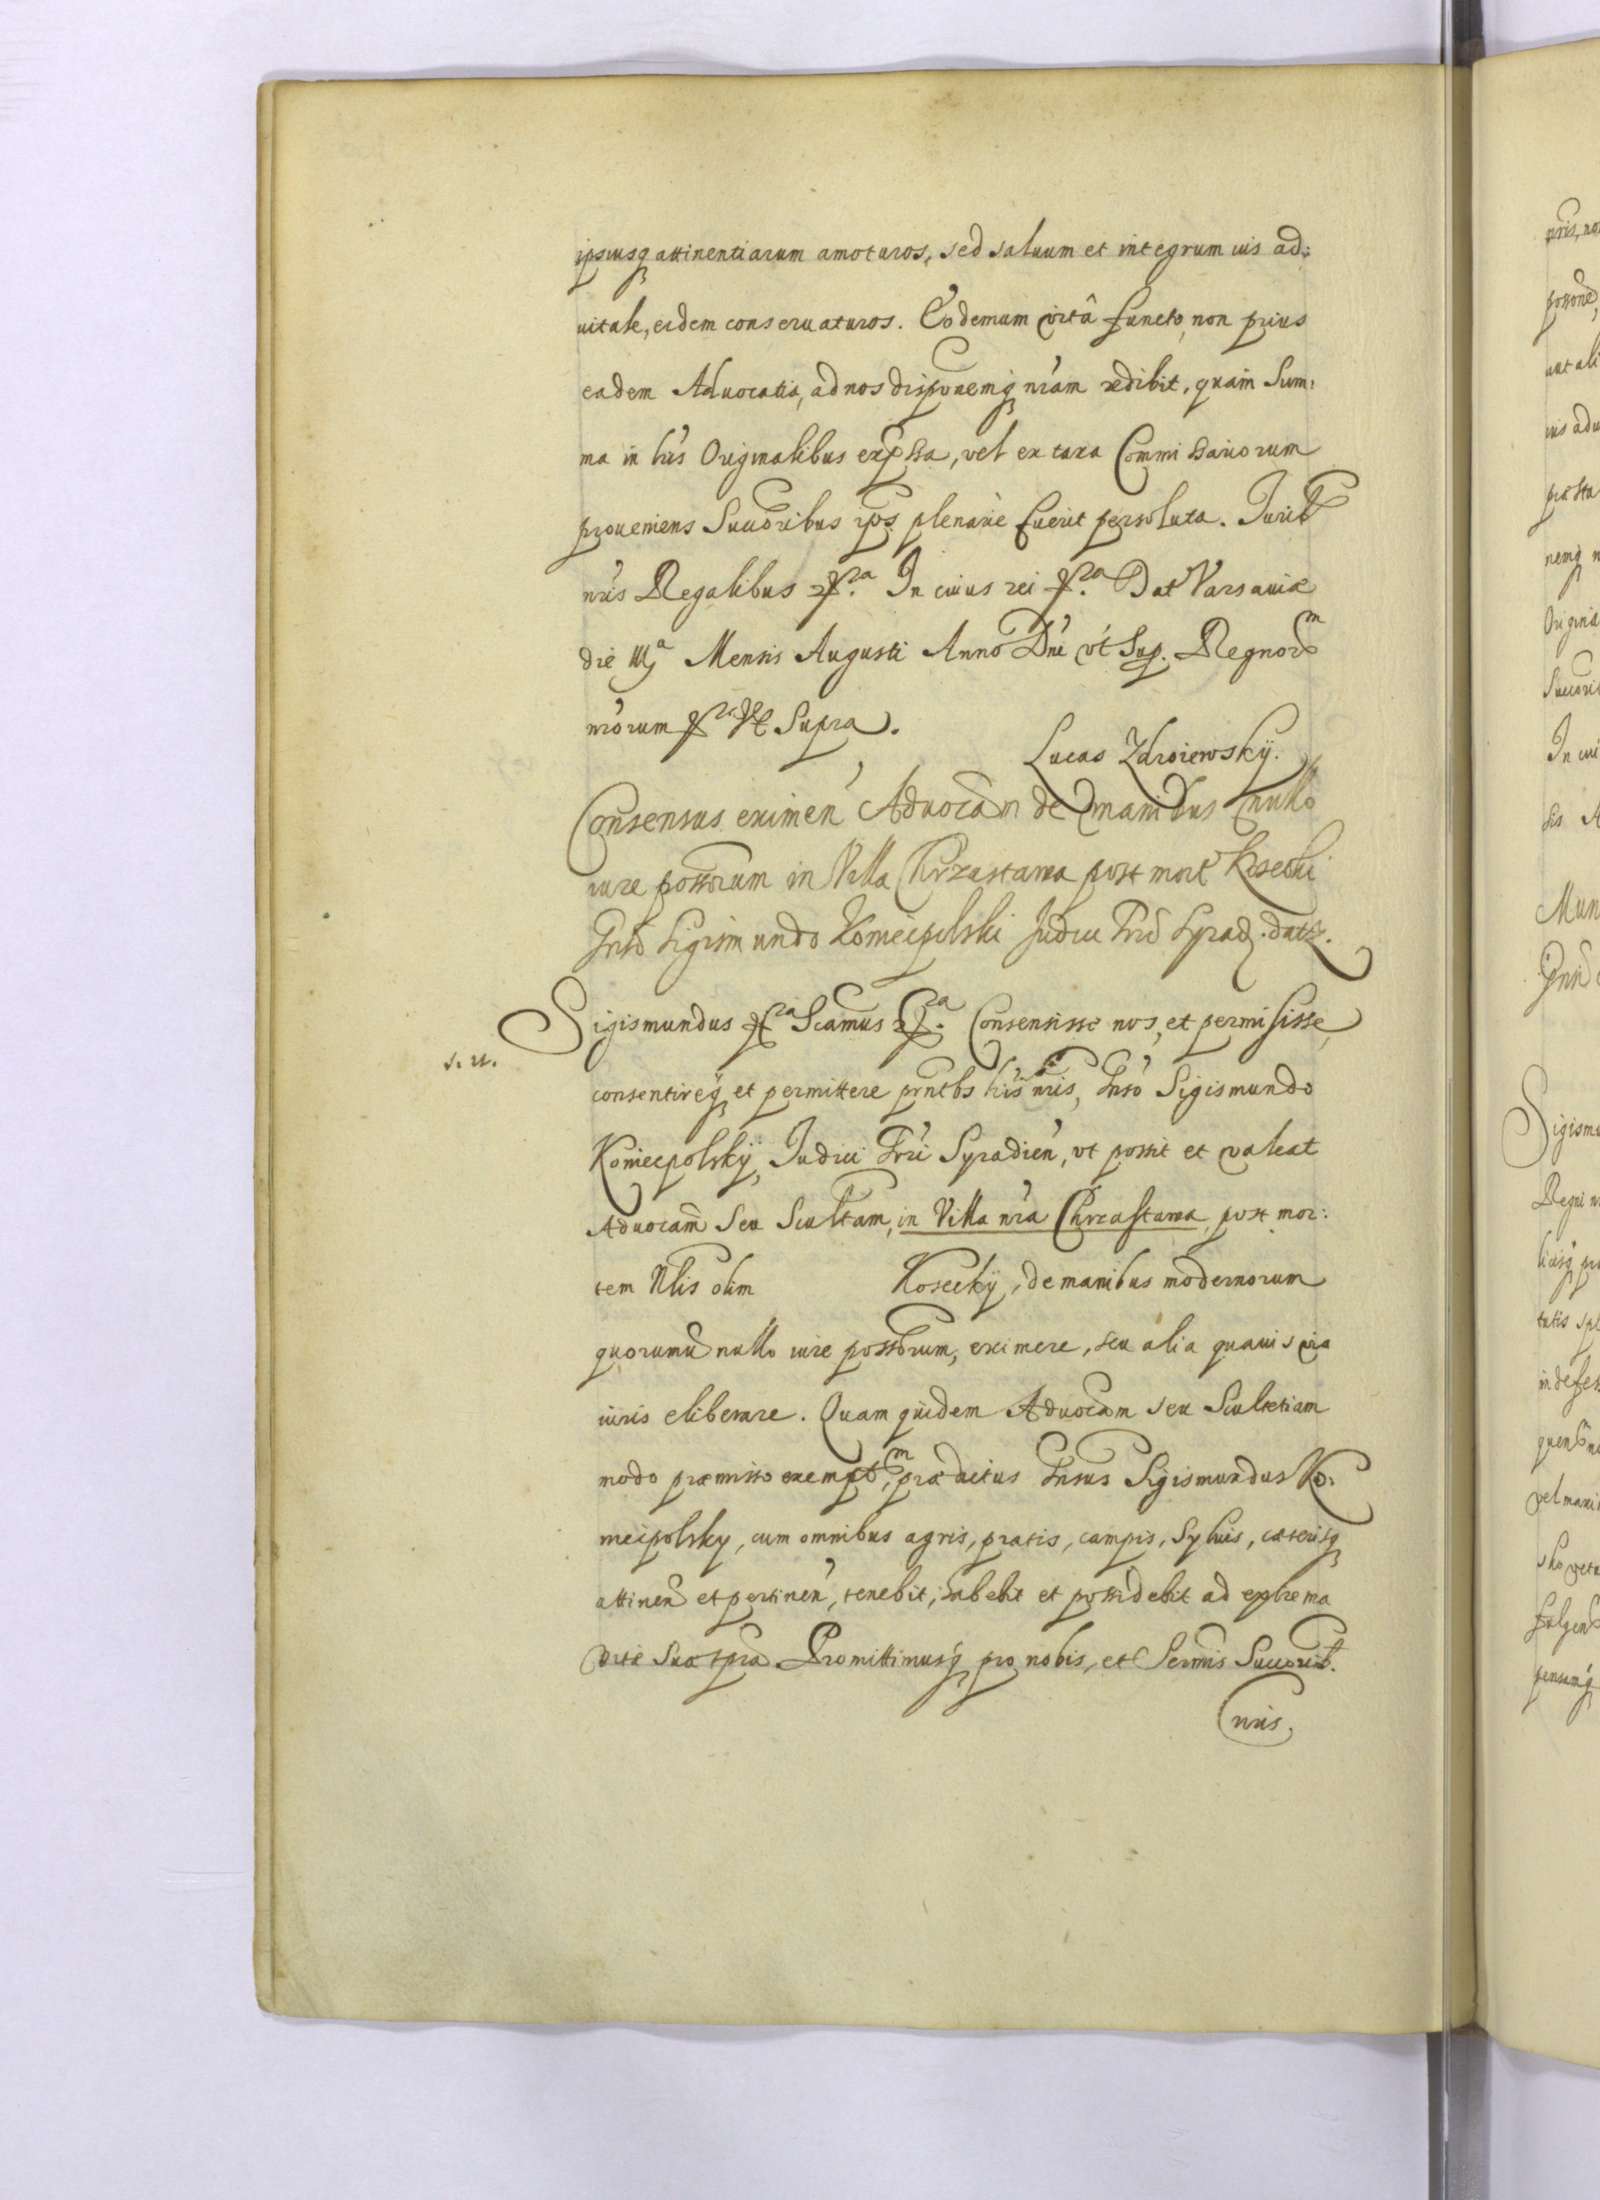 ipsiusq attinentiarum amoturos, sed saluum et integrum ius ad:
uitale, eidem conseruaturos. Eo demum vitâ functo, non prius
eadem Aduocatia, ad nos disponemq nram redibit, quam Sum:
ma in lris Originalibus expssa, vel ex taxa Commissariorum
proueniens Succoribus ips plenarie fuerit persoluta. Jurib
nris Regalibus In cuius rei Dat Varsauiæ
die Mensis Augusti Anno Dni vt Sup. Regnorm
nrorum Vt Supra.
Lucas Zdroiewskÿ.
Consensus eximen Aduocam de manibus nullo
iure possorum in Villa Chrzastawa post mort Kosecki
Gnso Sigismundo Koniecpolski Judici Trd Syrad. dat.
Sigismundus Scamus Consensisse nos, et permisisse,
s. u.
consentireq et permittere pntbs lris nris, Gnso Sigismundo
Koniecpolskÿ, Judici Trri Syradien, vt possit et valeat
Aduocam Seu Scultam, in Villa nra Chrzastawa, post mor:
tem Nlis olim Koseckÿ, de manibus modernorum
quorumu nullo iure possorum, eximere, seu alia quauis via
iuris eliberare. Quam quidem Aduocam seu Scultetiam
modo præmisso exemptm, prædictus Gnsus Sigismundus Ko:
niecpolsky, cum omnibus agris, pratis, campis, Syluis, cæterisq
attinen et pertinen, tenebit, habebit et possidebit ad extrema
vitæ suæ tpra. Promittimusq pro nobis, et Sermis Succorib.
nris,